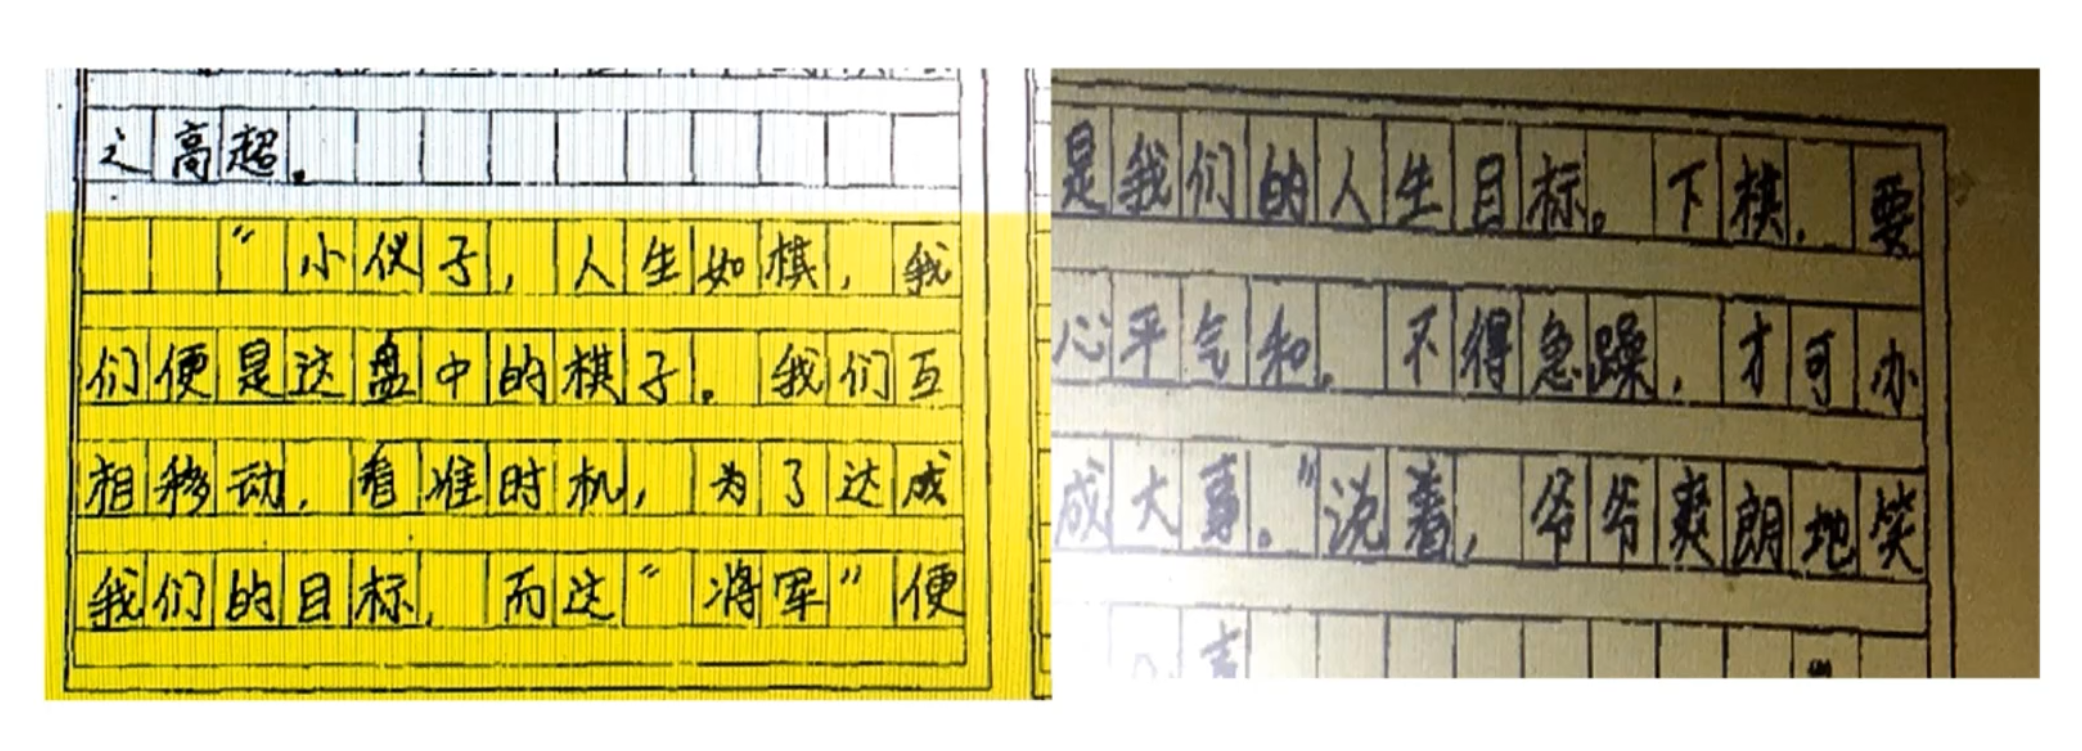 之高超。
“小伙子，人生如棋，我
们便是这盘中的棋子。我们互
相移动，看准时机，为了达成
我们的目标，而这“将军”便
是我们的人生目标。下棋，要
心平气和，不得急躁，才可办
成大事。”说着，爷爷爽朗地笑